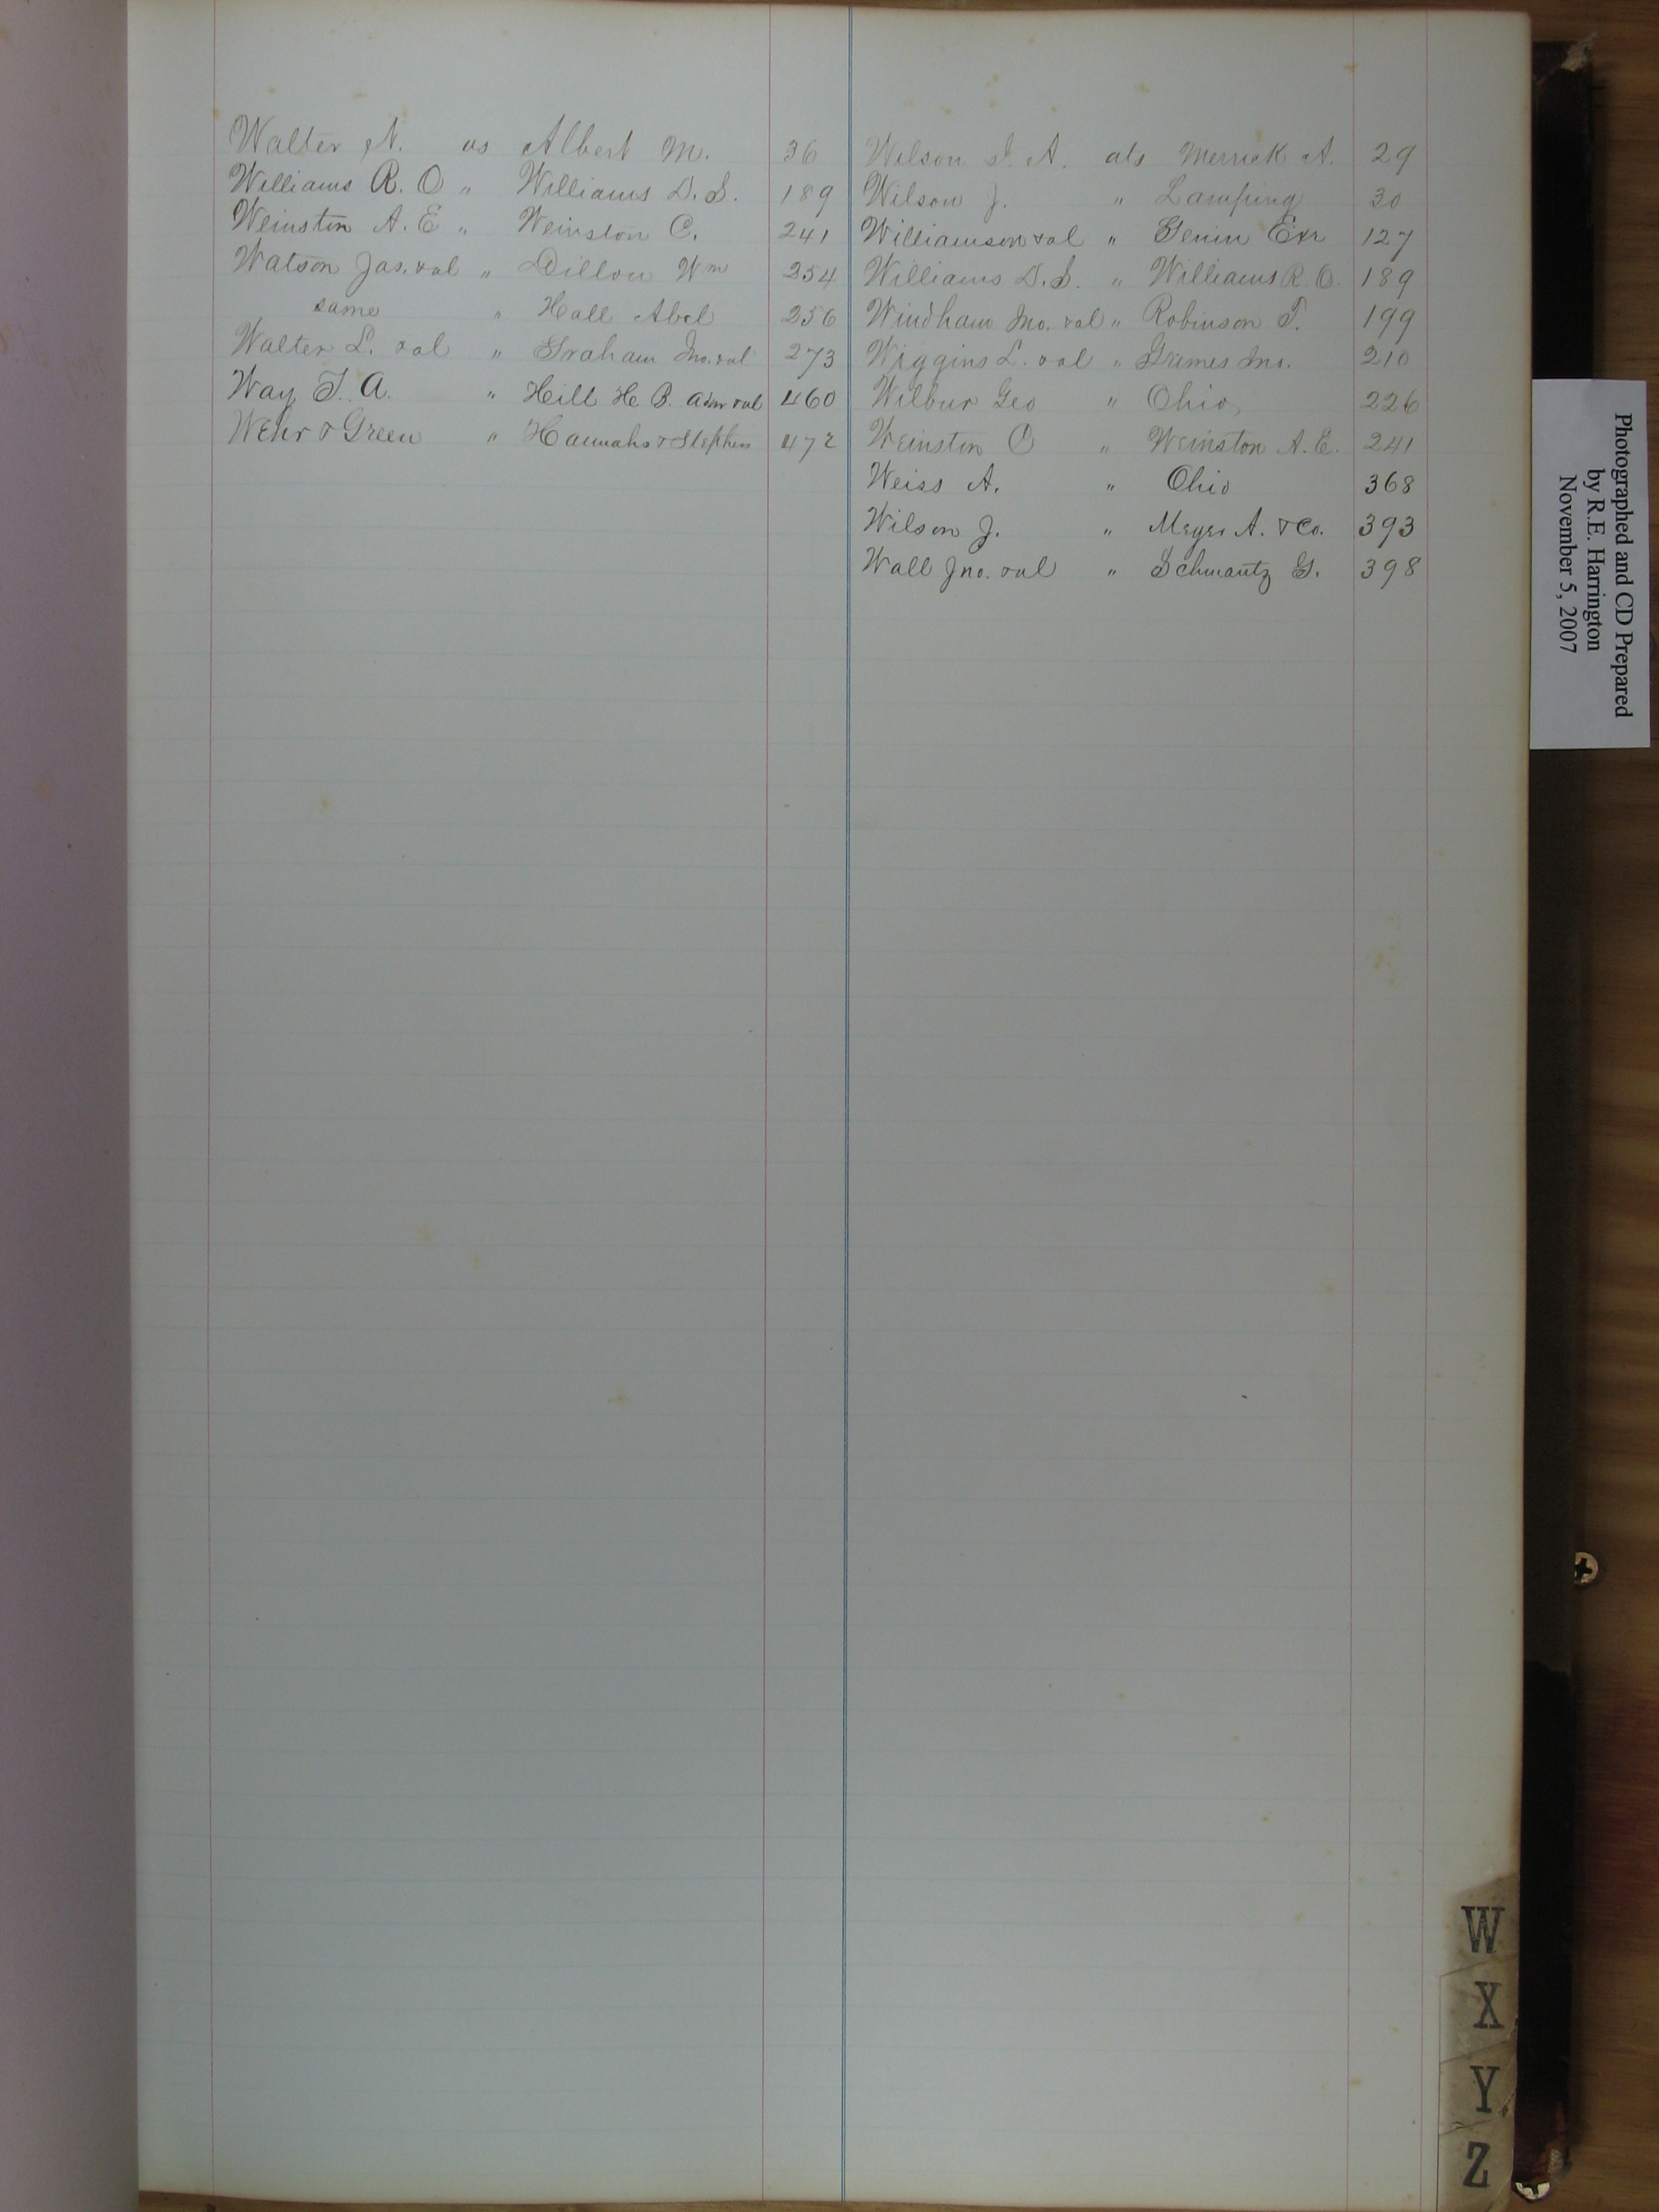 Walter N. vs Albert M. 36
Williams R. O " Williams D. S. 189
Weinston A. E " Weinston C. 241
Watson Jas. &al " Dillon Wm 254
same " Hall Abel 256
Walter L. &al " Graham Jno. &al 273
Way T. A. " Hill H. B. Admr &al 460
Wehr & Green " Hannahs & Stephen 472
Wilson J. A. ats Merrick A. 29
Wilson J. " Lamping 30
Williamson &al " Genin Exr 127
Williams D. S. " Williams R. O. 189
Windham Jno. &al " Robinson T. 199
Wiggins L. &al " Grimes Jno. 210
Wilbur Geo " Ohio 226
Weinston C " Weinston A. E. 241
Weiss A. " Ohio 368
Wilson J. " Meyer A. & Co. 393
Wall Jno. &al " Schwantz G. 398
Photographed and CD Prepared
by R.E. Harrington
November 5, 2007
W
X
Y
Z